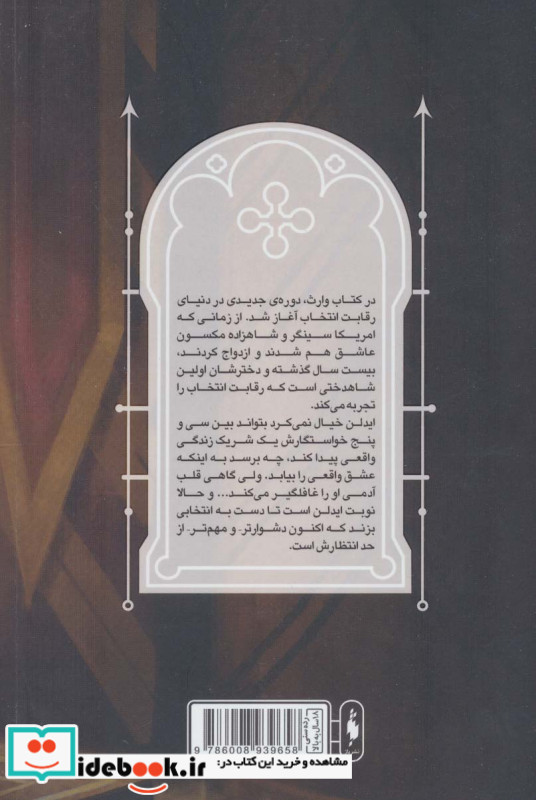 در کتاب وارث، دوره‌ی جدیدی در دنیای
رقابت انتخاب آغاز شد. از زمانی که
امریکا سینگر و شاهزاده مکسون
عاشق هم شدند و ازدواج کردند،
بیست سال گذشته و دخترشان اولین
شاهدختی است که رقابت انتخاب را
تجربه می‌کند.
ایدلن خیال نمی‌کرد بتواند بین سی و
پنج خواستگارش یک شریک زندگی
واقعی پیدا کند، چه برسد به اینکه
عشق واقعی را بیابد. ولی گاهی قلب
آدمی او را غافلگیر می‌کند... و حالا
نوبت ایدلن است تا دست به انتخابی
بزند که اکنون دشوارتر- و مهم‌تر- از
حد انتظارش است.
رده سنی
۱۸ سال به بالا
9 786008 939658
مشاهده و خرید این کتاب در:
idebook.ir